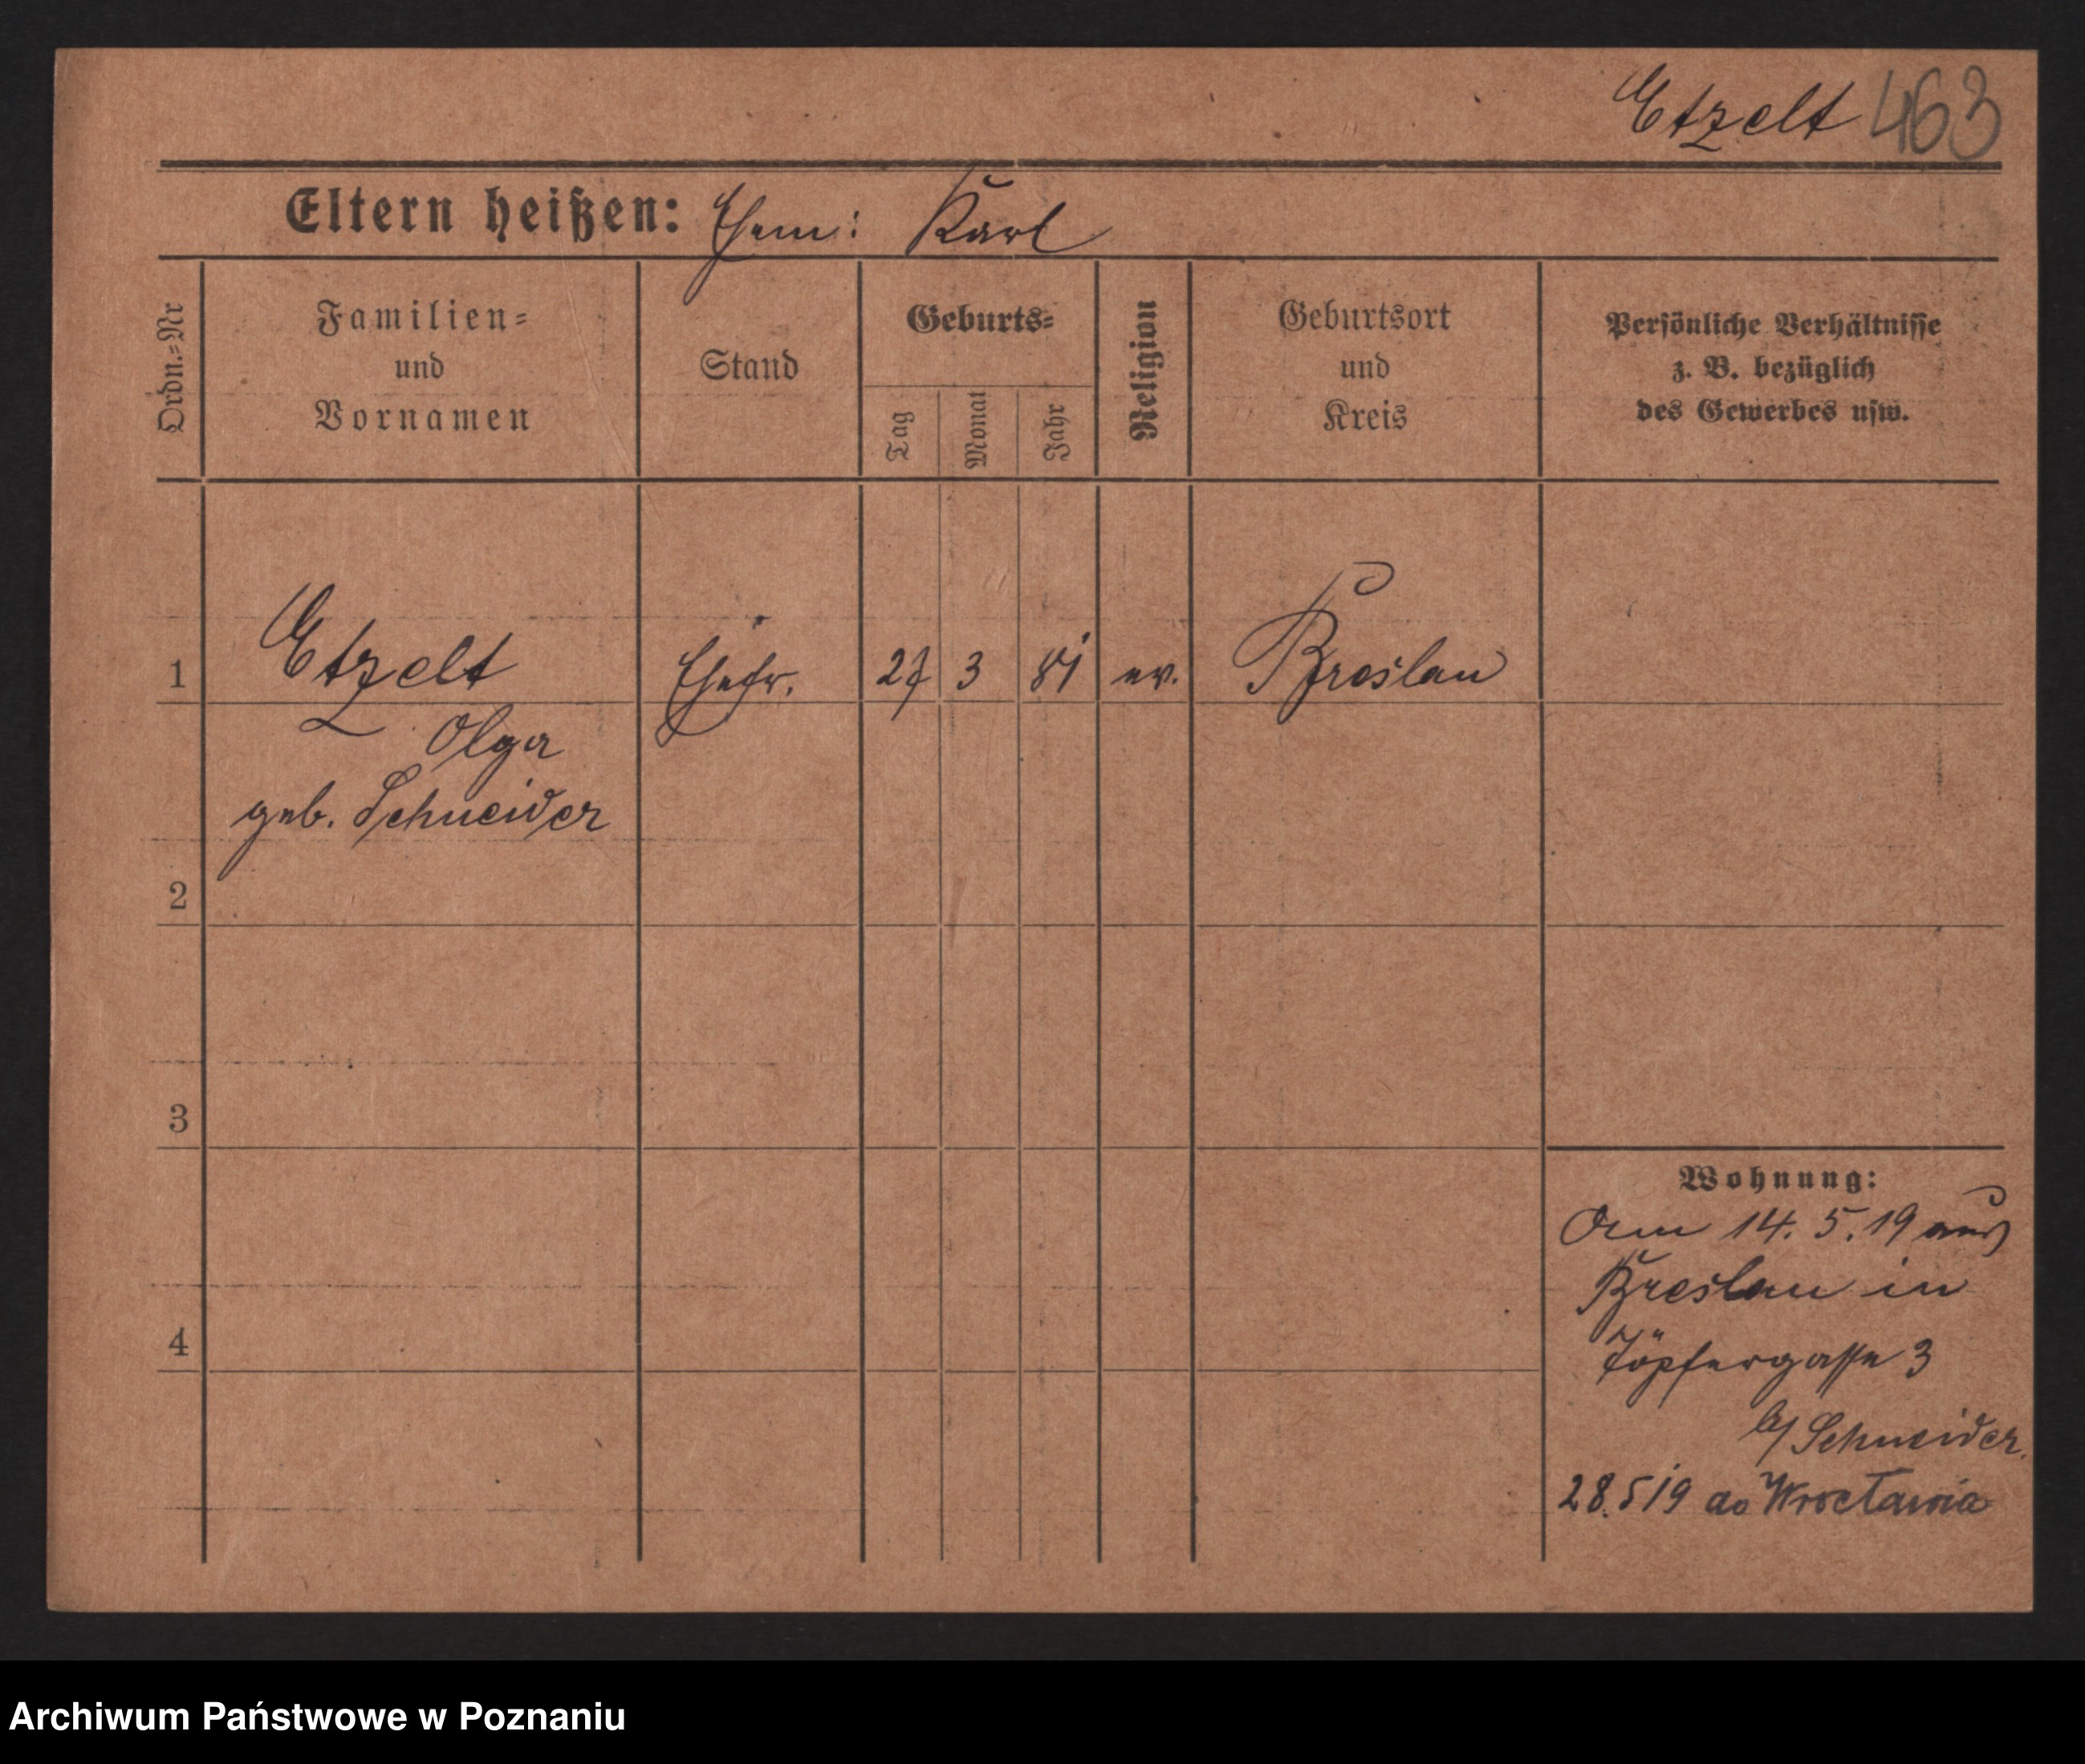 Etzelt 463
Eltern heißen: Ehem: Karl
Ordn.=Nr
Familien=
und
Vornamen
Stand
Geburts=
Tag
Monat
Jahr
Religion
Geburtsort
und
Kreis
Persönliche Verhältnisse
z. B. bezüglich
des Gewerbes usw.
1 Etzelt Ehefr. 27 3 81 ev. Breslau
Olga
geb. Schneider
2
3
4
Wohnung:
Am 14. 5. 19 aus
Breslau in
Töpfergasse 3
b/ Schneider.
28.5 19 do Wrocławia
Archiwum Państwowe w Poznaniu